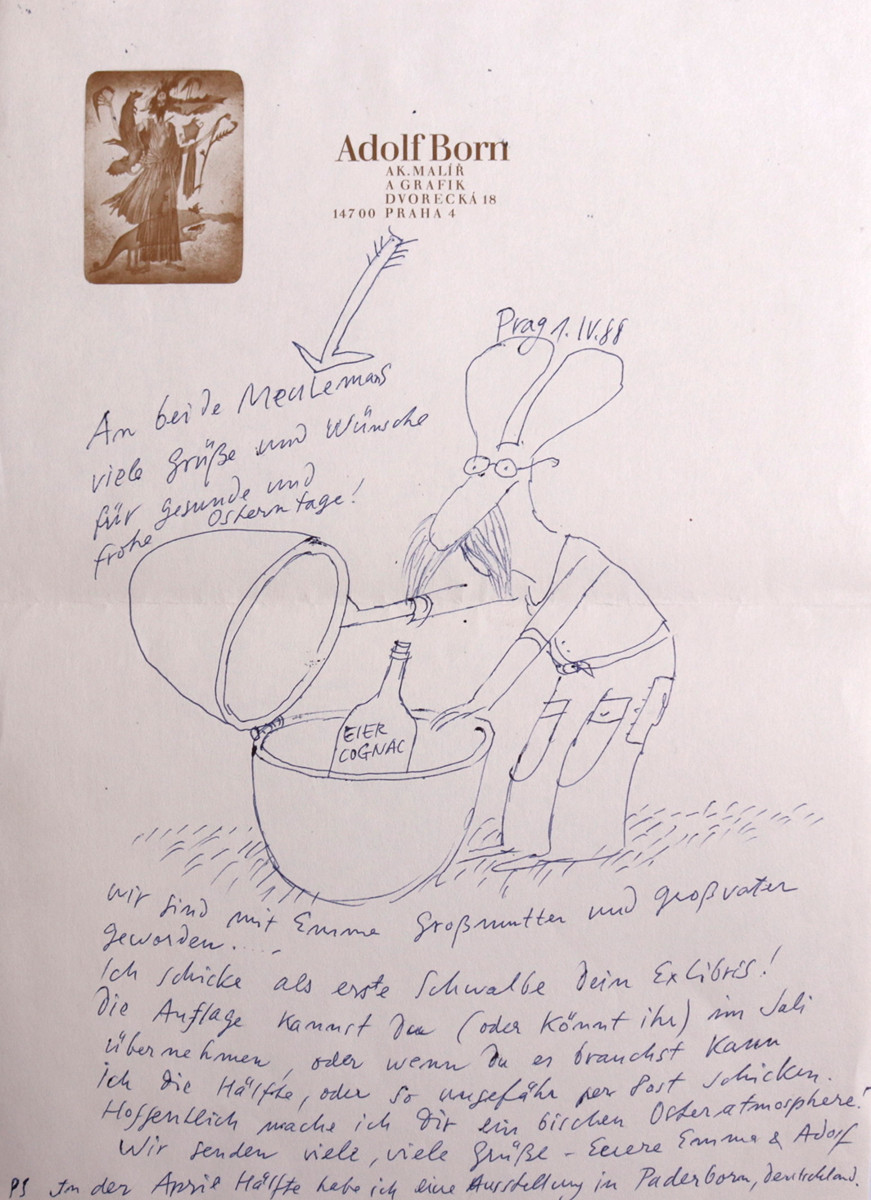 Adolf Born
AK. MALÍŘ
A GRAFIK
DVORECKÁ 18
147 00 PRAHA 4
Prag 1. IV. 88
An beide Meulemans
viele Grüße und Wünsche
für gesunde und
frohe Osterntage!
EIER
COGNAC
Wir sind mit Emma Großmutter und Großvater
geworden.....
Ich schicke als erste Schwalbe Dein ExLibris!
Die Auflage kannst Du (oder könnt ihr) im Juli
übernehmen, oder wenn Du es brauchst kann
ich die Hälfte, oder so ungefähr per Post schicken.
Hoffentlich mache ich Dir ein bischen Osteratmosphere!
Wir senden viele, viele Grüße – Euere Emma & Adolf
PS In der April Hälfte habe ich eine Ausstellung in Paderborn, Deutschland.